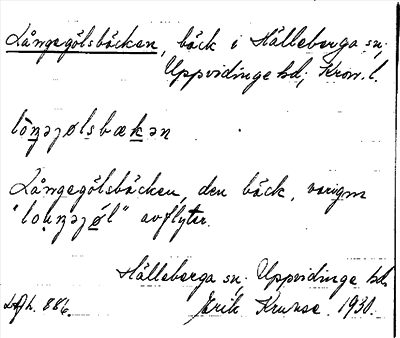 Långegölsbäcken, bäck i Hälleberga sn;
Uppvidinge hd; Kron. l.
lòŋəjølsbækən
Långegölsbäcken, den bäck, varigm
"loŋəjøl" avflyter.
Hälleberga sn. Uppvidinge hd.
Erik Kruuse. 1930.